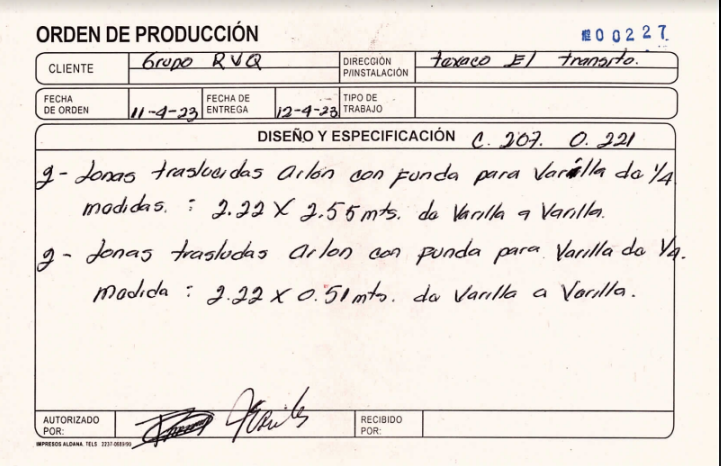 ORDEN DE PRODUCCIÓN
Nº 00227
CLIENTE Grupo RVQ DIRECCIÓN P/INSTALACIÓN texaco El transito.
FECHA DE ORDEN 11-4-23 FECHA DE ENTREGA 12-4-23 TIPO DE TRABAJO
DISEÑO Y ESPECIFICACIÓN C. 207. O. 221
2- Lonas traslucidas Arlon con funda para Varilla de 1/4
medidas. : 2.22 X 2.55 mts. de Varilla a Varilla.
2- Lonas trasludas Arlon con funda para Varilla de 1/4.
medida : 2.22 X 0.51 mts. de Varilla a Varilla.
AUTORIZADO POR: RECIBIDO POR:
IMPRESOS ALDANA TELS